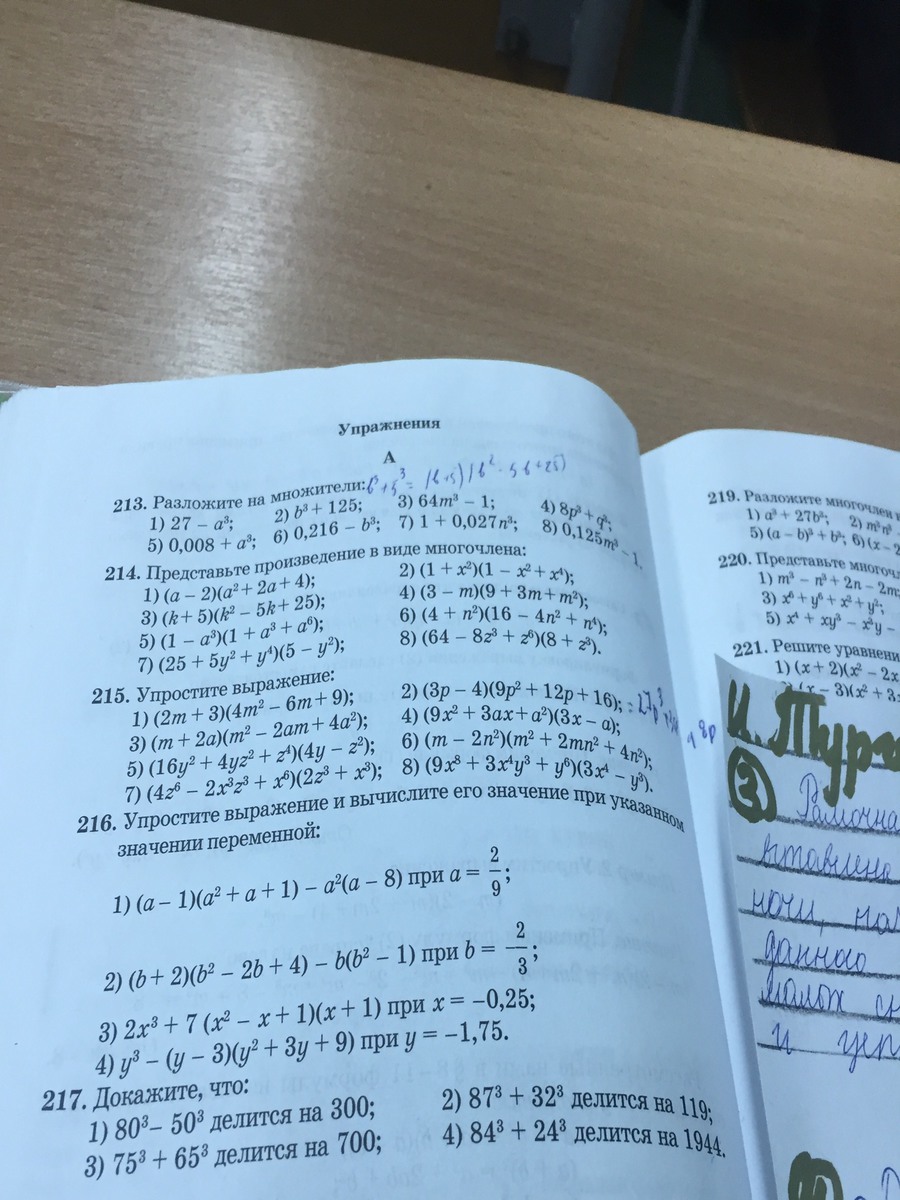 Упражнения
А
213. Разложите на множители: b³ + 5³ = (b+5)(b² - 5b+25)
1) 27 – a³; 2) b³ + 125; 3) 64m³ – 1; 4) 8p³ + q³;
5) 0,008 + a³; 6) 0,216 – b³; 7) 1 + 0,027n³; 8) 0,125m³ – 1.
214. Представьте произведение в виде многочлена:
1) (a – 2)(a² + 2a + 4); 2) (1 + x²)(1 – x² + x⁴);
3) (k + 5)(k² – 5k + 25); 4) (3 – m)(9 + 3m + m²);
5) (1 – a³)(1 + a³ + a⁶); 6) (4 + n²)(16 – 4n² + n⁴);
7) (25 + 5y² + y⁴)(5 – y²); 8) (64 – 8z³ + z⁶)(8 + z³).
215. Упростите выражение:
1) (2m + 3)(4m² – 6m + 9); 2) (3p – 4)(9p² + 12p + 16); = 27p³
3) (m + 2a)(m² – 2am + 4a²); 4) (9x² + 3ax + a²)(3x – a);
5) (16y² + 4yz² + z⁴)(4y – z²); 6) (m – 2n²)(m² + 2mn² + 4n²);
7) (4z⁶ – 2x³z³ + x⁶)(2z³ + x³); 8) (9x⁸ + 3x⁴y³ + y⁶)(3x⁴ – y³).
216. Упростите выражение и вычислите его значение при указанном
значении переменной:
1) (a – 1)(a² + a + 1) – a²(a – 8) при a = 2/9;
2) (b + 2)(b² – 2b + 4) – b(b² – 1) при b = 2/3;
3) 2x³ + 7 (x² – x + 1)(x + 1) при x = –0,25;
4) y³ – (y – 3)(y² + 3y + 9) при y = –1,75.
217. Докажите, что:
1) 80³ – 50³ делится на 300; 2) 87³ + 32³ делится на 119;
3) 75³ + 65³ делится на 700; 4) 84³ + 24³ делится на 1944.
219. Разложите многочлен
1) a³ + 27b³; 2) m³n³
5) (a – b)³ + b³; 6) (x – 2
220. Представьте
1) m³ – n³ + 2n – 2m;
3) x⁶ + y⁶ + x² + y²;
5) x⁴ + xy³ – x³y –
221. Решите
1) (x + 2)(x² – 2x
(x – 3)(x² + 3x
И. Тург
3
Рамочна
вставлена
ночи,
данного